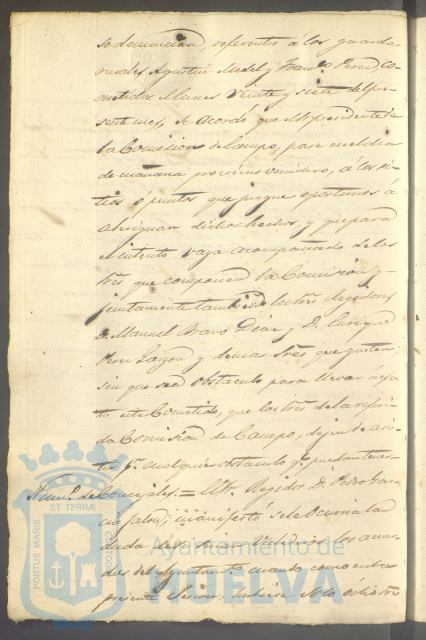 se denuncian, referentes á los guardas
rurales Agustin Medel y Franco. Perez, co
metidos el lunes Veinte y siete del pre
sente mes, Se acordó que el Sr. presidente de
la Comision de Campo, pase en el dia
de mañana proximo venidero, á los si
tios ó puntos que juzgue oportunos a
averiguar dichos hechos, y que para
el intento vaya acompañado de los
Sres. que componen la Comision y
juntamente tambien los Sres. Regidores
D. Manuel Bravo Diaz y D. Enrique
Perez y demas Sres. que gusten,
sin que sea obstaculo para llevar á efec
to este Cometido, que los Sres. de la referi
da Comision de Campo, dejen de asis
tir pr. cualquier obstaculo q. puedan tener
Num.o de Concejales = El Sr. Regidor D. Pedro Gar
cia manifestó se le Ocurria la
duda de si eran Validos los acuer
dos del Ayuntamto. cuando como en la
presente Sesion, hubiese solo ocho Sres.
PORTUS MARIS
ET TERRÆ
CUSTODIA
Ayuntamiento de
HUELVA